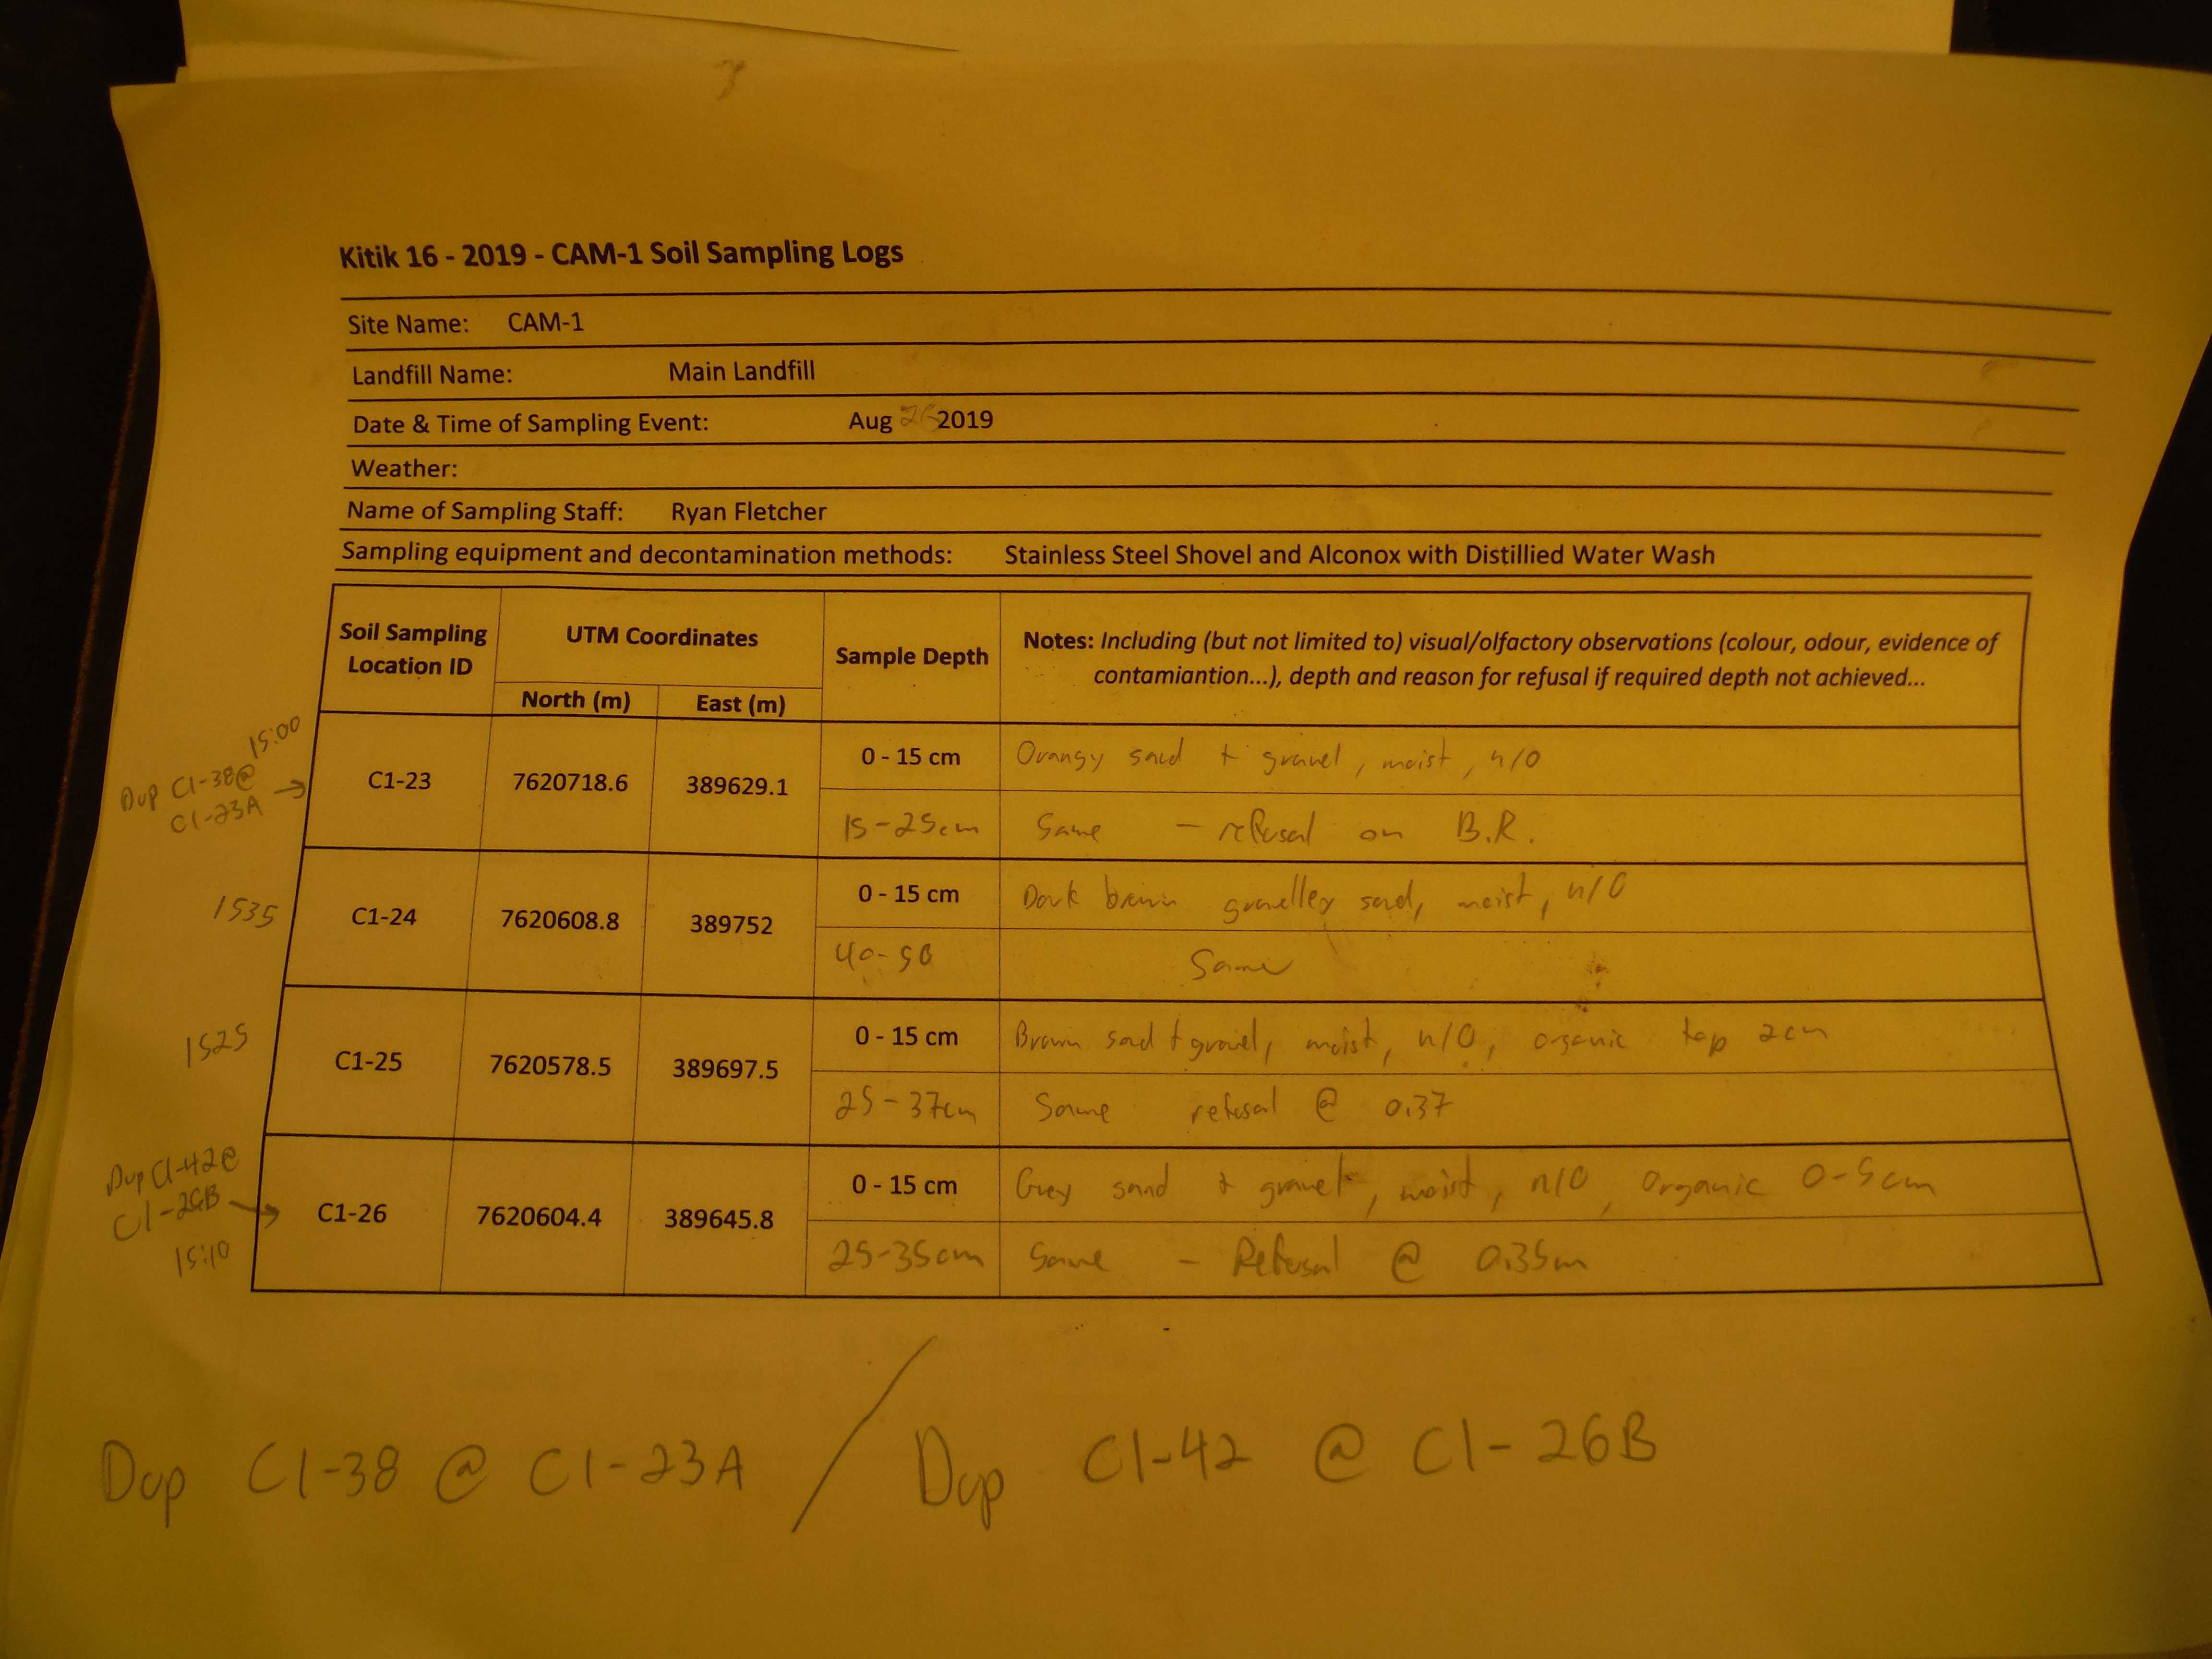 Kitik 16 - 2019 - CAM-1 Soil Sampling Logs
Site Name: CAM-1
Landfill Name: Main Landfill
Date & Time of Sampling Event: Aug 26 2019
Weather:
Name of Sampling Staff: Ryan Fletcher
Sampling equipment and decontamination methods: Stainless Steel Shovel and Alconox with Distillied Water Wash
Soil Sampling Location ID UTM Coordinates Sample Depth Notes: Including (but not limited to) visual/olfactory observations (colour, odour, evidence of
contamiantion...), depth and reason for refusal if required depth not achieved...
North (m) East (m)
15:00
Dup C1-38@
C1-23A →
C1-23 7620718.6 389629.1 0 - 15 cm Orangy sand + gravel, moist, n/o
15-25cm Same - refusal on B.R.
1535
C1-24 7620608.8 389752 0 - 15 cm Dark brown gravelley sand, moist, n/O
40-50 Same
1525
C1-25 7620578.5 389697.5 0 - 15 cm Brown sand + gravel, moist, n/O, organic top 2cm
25-37cm Same refusal @ 0.37
Dup C1-42@
C1-26B →
15:10
C1-26 7620604.4 389645.8 0 - 15 cm Grey sand + gravel, moist, n/O, Organic 0-5cm
25-35cm Same - Refusal @ 0.35m
Dup C1-38 @ C1-23A / Dup C1-42 @ C1-26B